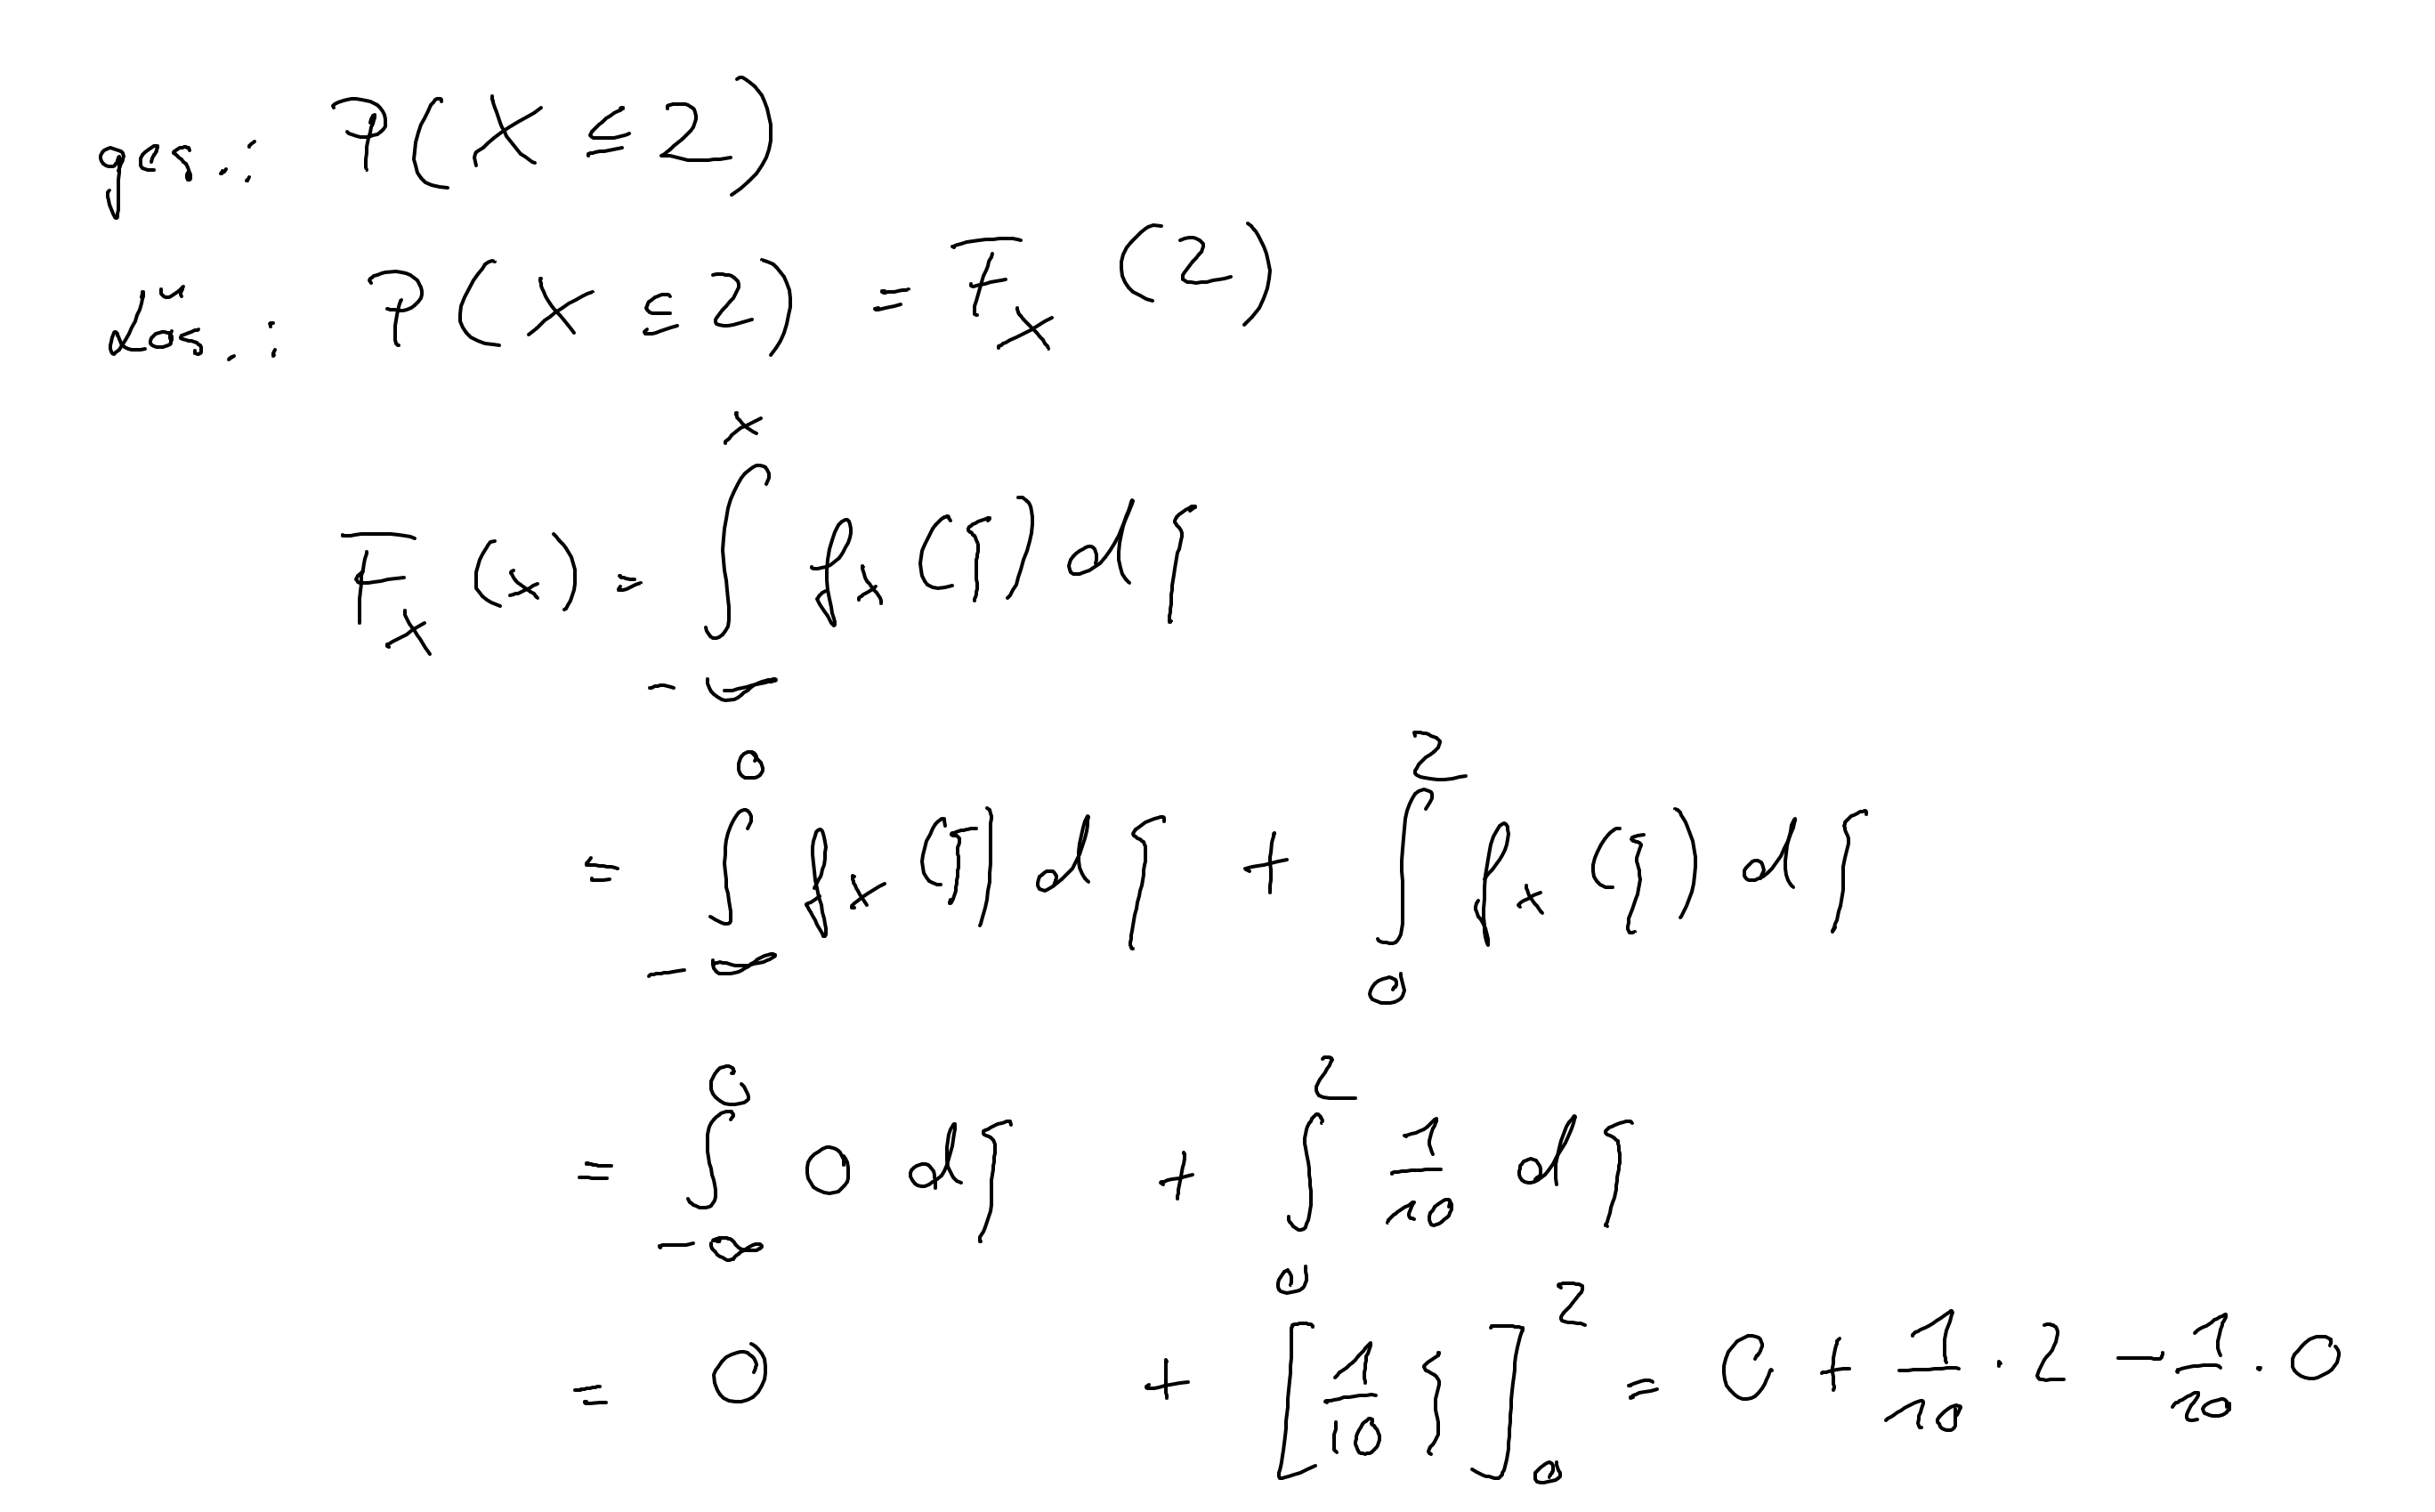 ges.: P(X ≤ 2)
Lös.: P(X ≤ 2) = F_X (2)
F_X (x) = ∫_{-∞}^{x} f_X (ξ) dξ
= ∫_{-∞}^{0} f_X (ξ) dξ + ∫_{0}^{2} f_X (ξ) dξ
= ∫_{-∞}^{0} 0 dξ + ∫_{0}^{2} 1/10 dξ
= 0 + [1/10 ξ]_{0}^{2} = 0 + 1/10 · 2 - 1/10 · 0